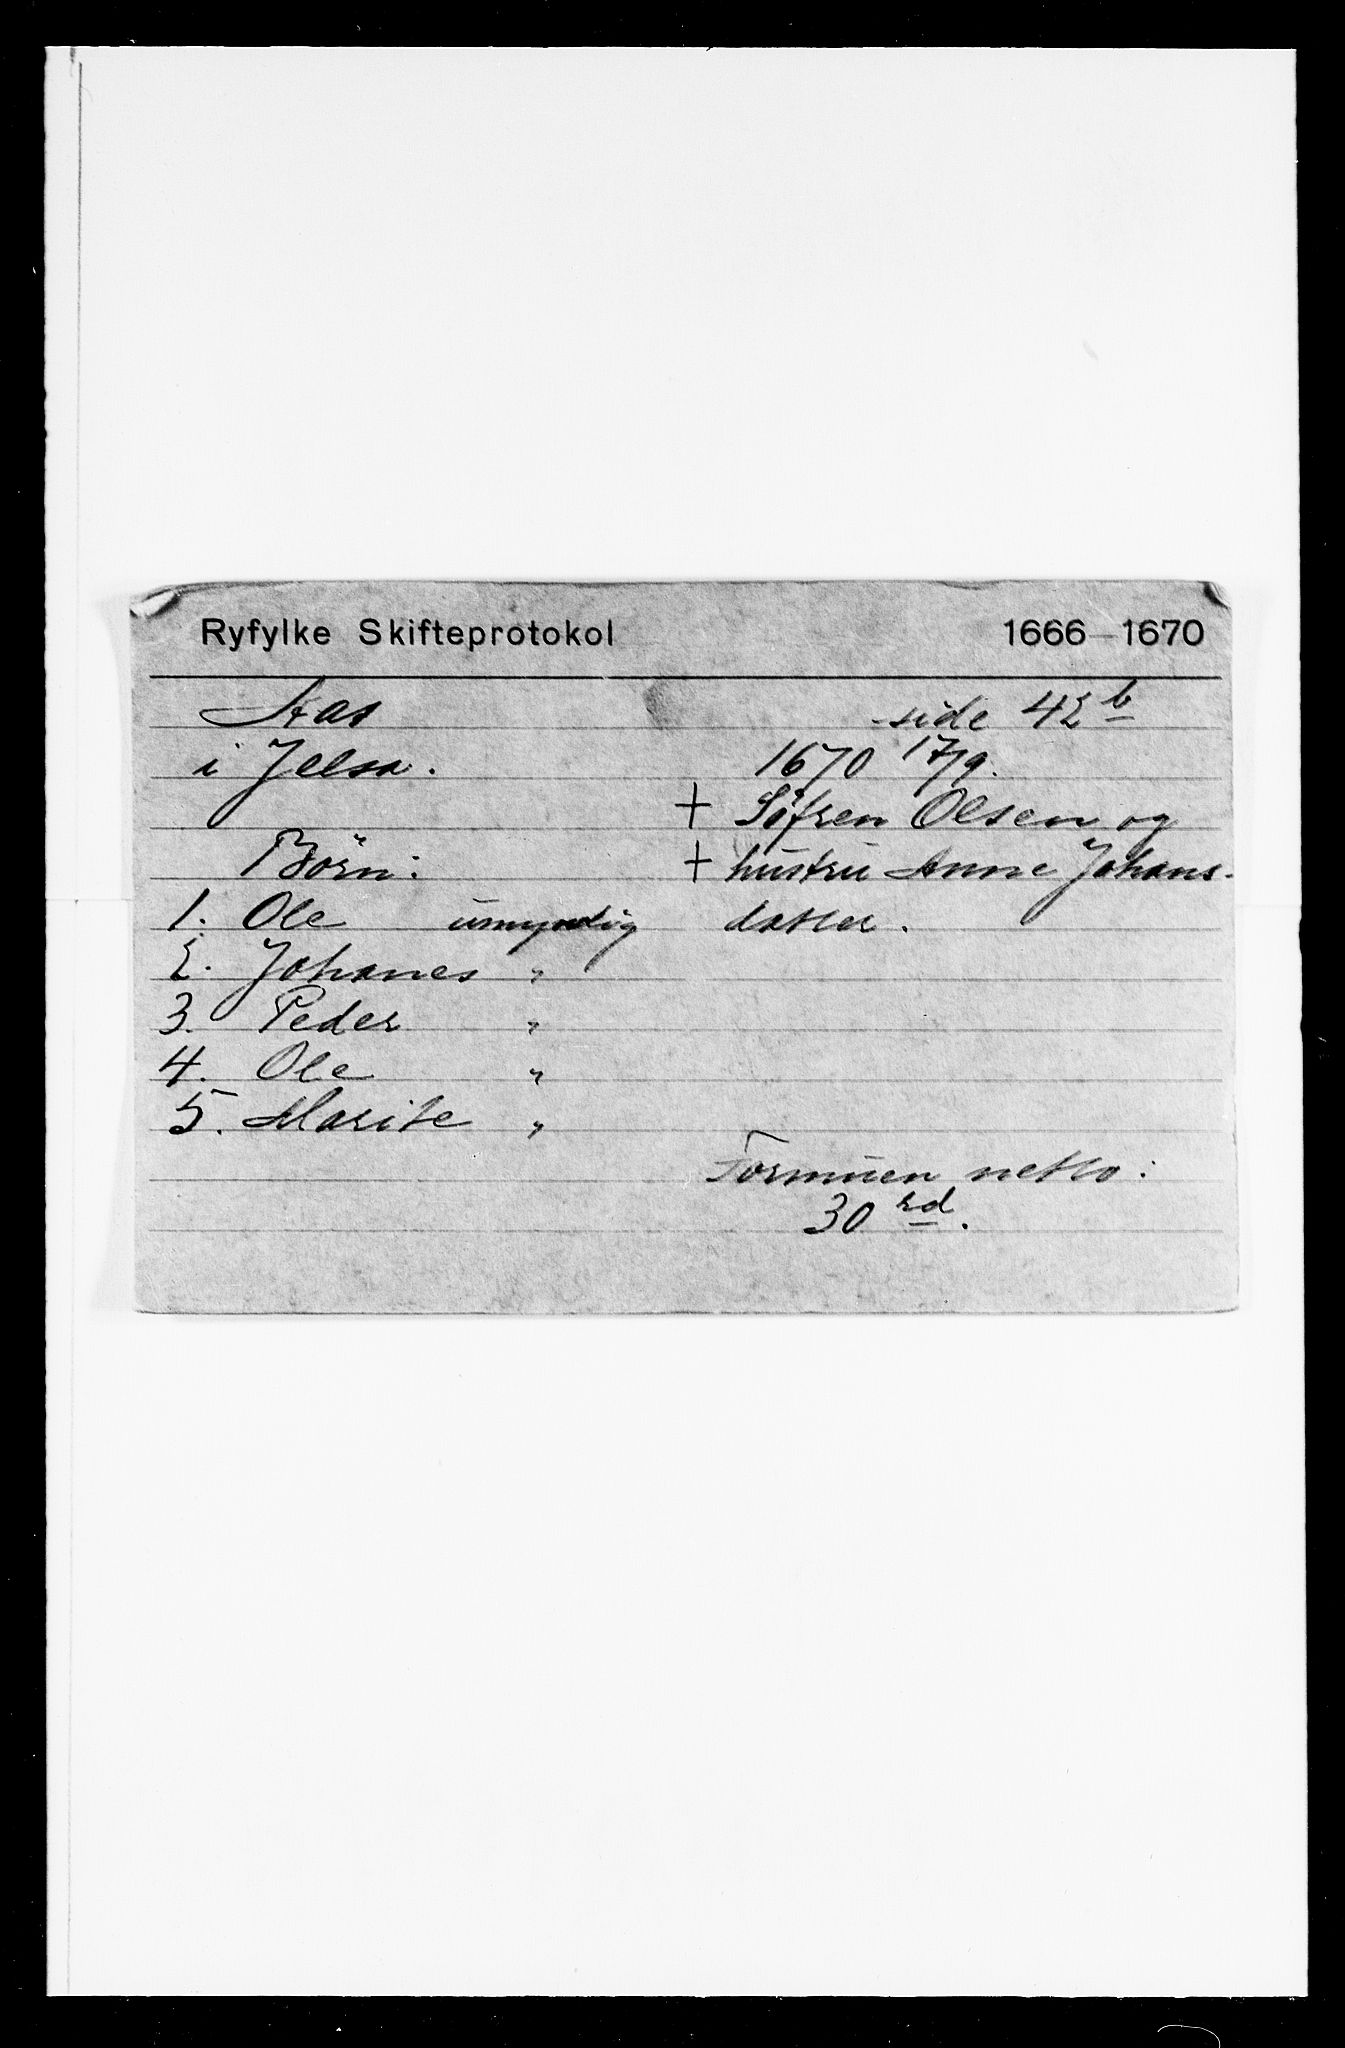 Ryfylke Skifteprotokol 1666-1670
Aas side 42 b
i Jelsa. 1670 17/9.
+ Söfren Olsen og
Börn: + hustru Anne Johans-
1. Ole umyndig datter.
2. Johanes "
3. Peder "
4. Ole "
5. Marite "
Formuen netto:
30 rd.